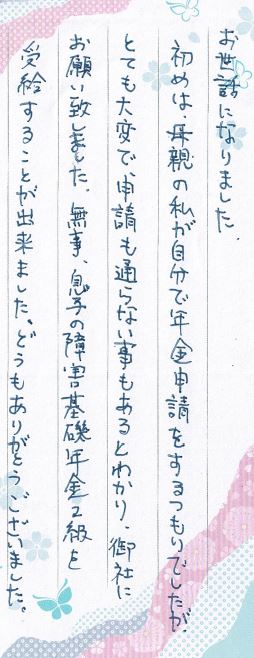 お世話になりました.
初めは、母親の私が自分で年金申請をするつもりでしたが、
とても大変で、申請も通らない事もあるとわかり、御社に
お願い致しました。無事、息子の障害基礎年金2級を
受給することが出来ました。どうもありがとうございました。